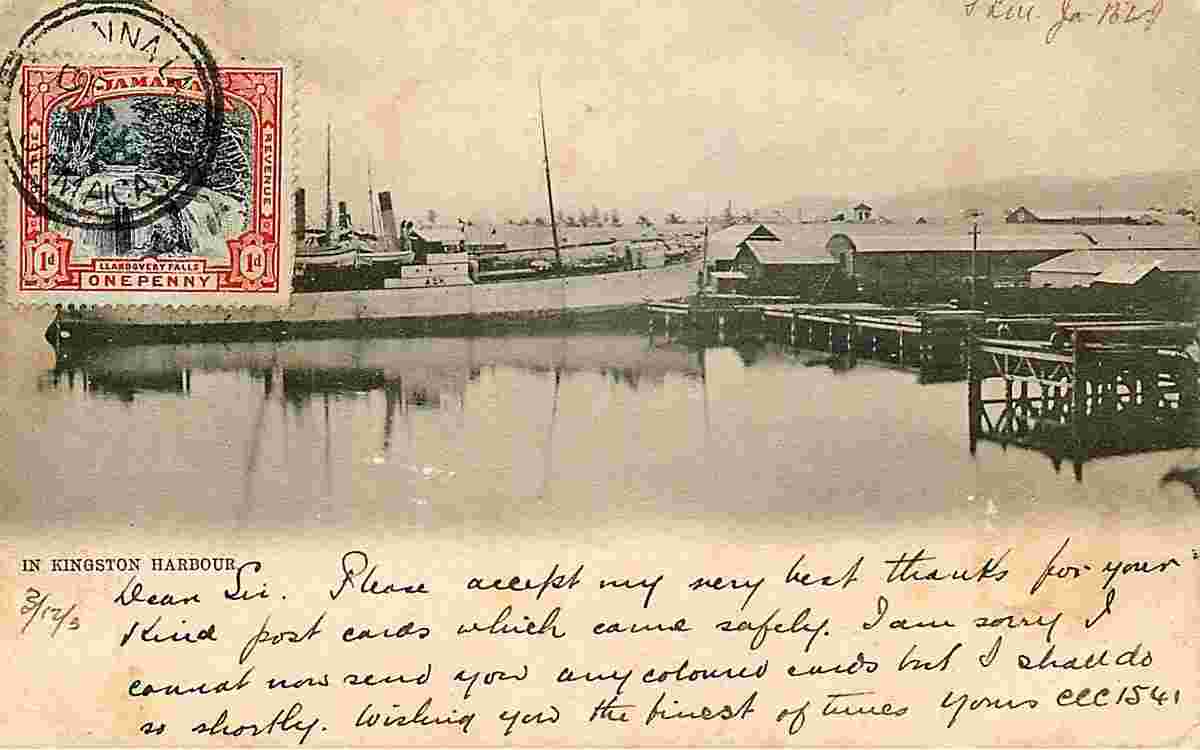 JAMAICA
REVENUE
1d
LLANDOVERY FALLS
1d
ONE PENNY
IN KINGSTON HARBOUR
3/12/3
Dear Sir. Please accept my very best thanks for your
Kind post cards which came safely. I am sorry I
cannot now send you any coloured cards but I shall do
so shortly. Wishing you the finest of times Yours CCC1541